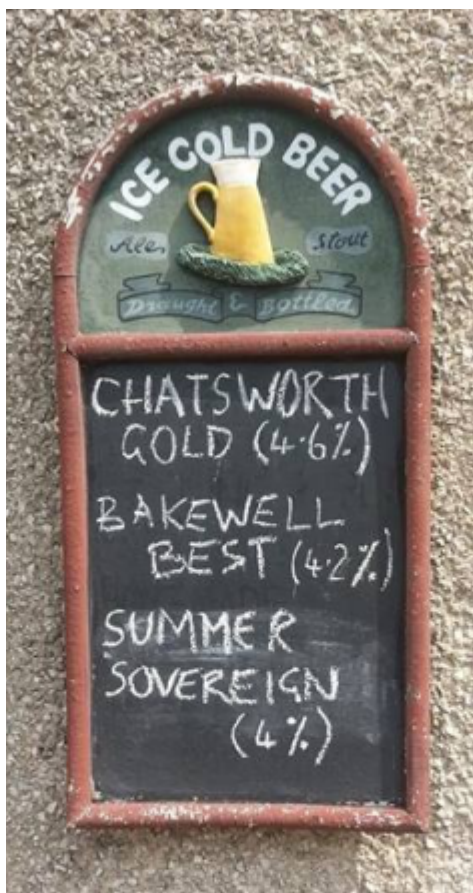 ICE COLD BEER
Ales Stout
Draught & Bottled
CHATSWORTH
GOLD (4.6%)
BAKEWELL
BEST (4.2%)
SUMMER
SOVEREIGN
(4%)